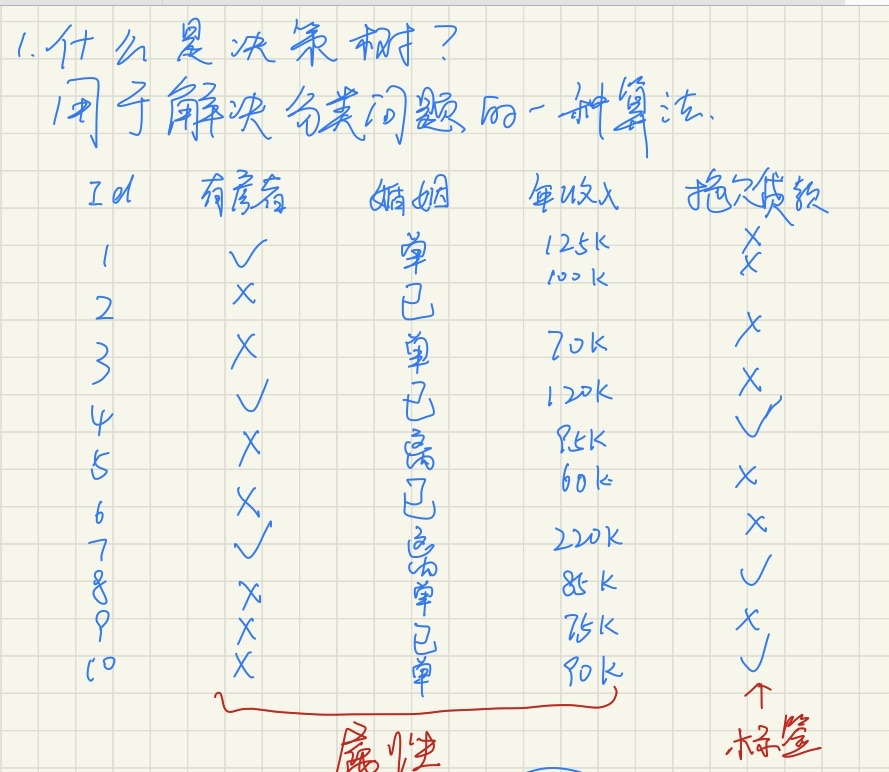 1. 什么是决策树?
用于解决分类问题的一种算法.
Id 有房者 婚姻 年收入 拖欠贷款
1 ✓ 单 125K ×
2 × 已 100K ×
3 × 单 70K ×
4 ✓ 已 120K ×
5 × 离 95K ✓
6 × 已 60K ×
7 ✓ 离 220K ×
8 × 单 85K ✓
9 × 已 75K ×
10 × 单 90K ✓
属性 标签